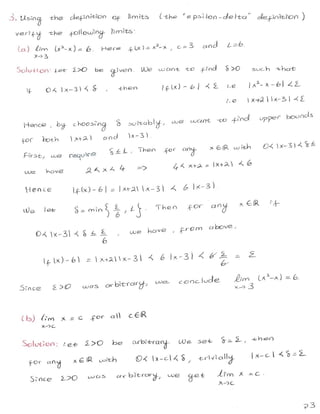 3. Using the definition of limits (the "epsilon-delta" definition)
verify the following limits:
(a) lim x→3 (x²-x) = 6. Here f(x) = x²-x, c=3 and L=6.
Solution: Let ε>0 be given. We want to find δ>0 such that
if 0<|x-3|<δ, then |f(x)-6|<ε i.e |x²-x-6|<ε
i.e |x+2||x-3|<ε
Hence, by choosing δ suitably, we want to find upper bounds
for both |x+2| and |x-3|.
First, we require δ≤1. Then for any x∈ℝ with 0<|x-3|<δ≤1
we have 2<x<4 => 4<x+2=|x+2|<6
Hence |f(x)-6| = |x+2||x-3| < 6|x-3|.
We let δ = min{ε/6, 1}. Then for any x∈ℝ if
0<|x-3|<δ≤ε/6, we have, from above,
|f(x)-6| = |x+2||x-3| < 6|x-3| < 6·ε/6 = ε
Since ε>0 was arbitrary, we conclude lim x→3 (x²-x) = 6.
(b) lim x→c x = c for all c∈ℝ
Solution: Let ε>0 be arbitrary. We set δ=ε, then
for any x∈ℝ with 0<|x-c|<δ, trivially |x-c|<δ=ε.
Since ε>0 was arbitrary, we get lim x→c x = c.
23